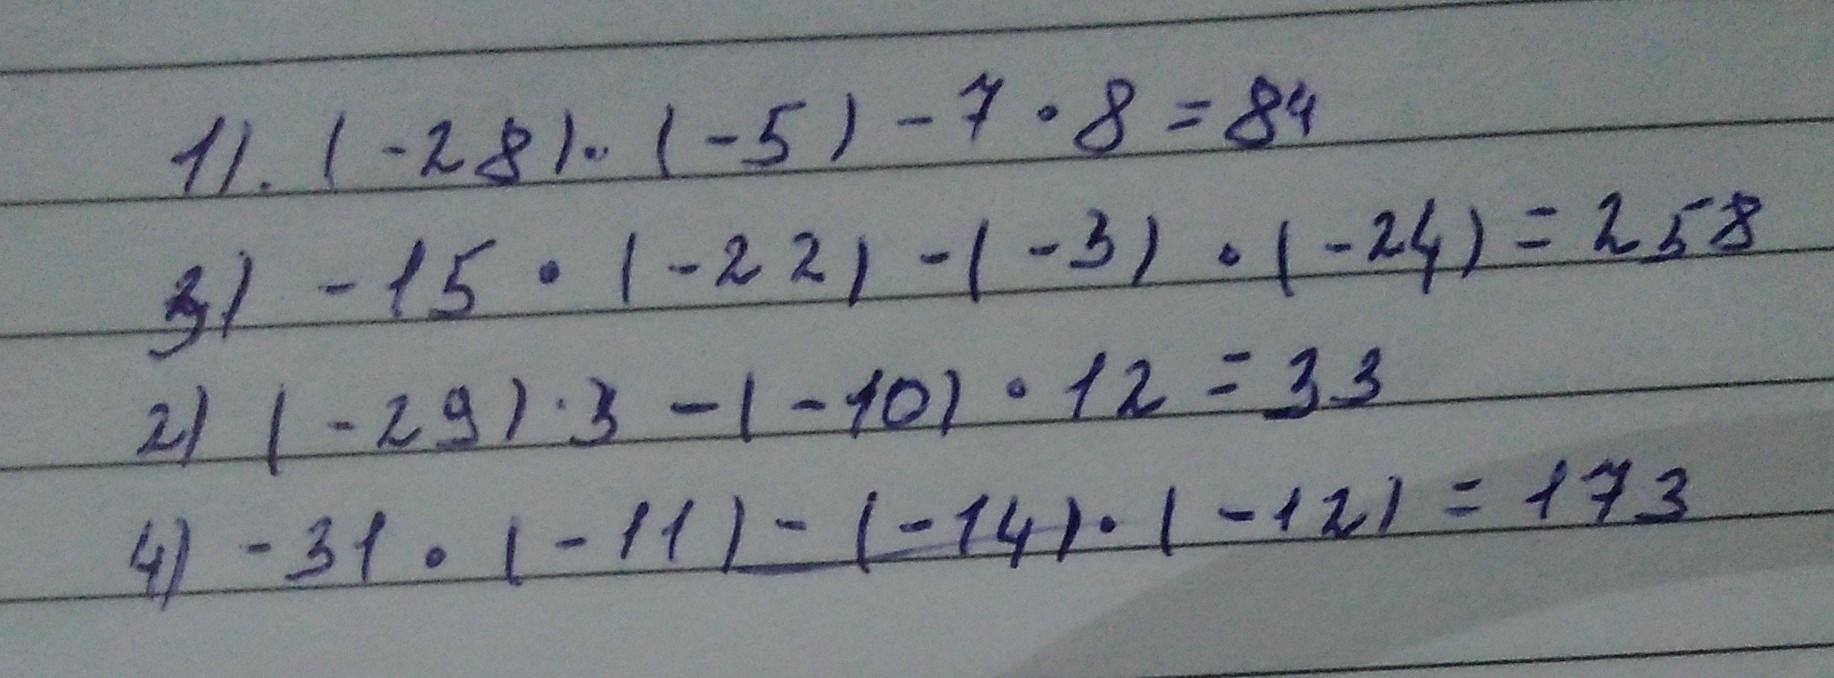 1). (-28)·(-5)-7·8=84
3) -15·(-22)-(-3)·(-24)=258
2) (-29)·3-(-10)·12=33
4) -31·(-11)-(-14)·(-12)=173